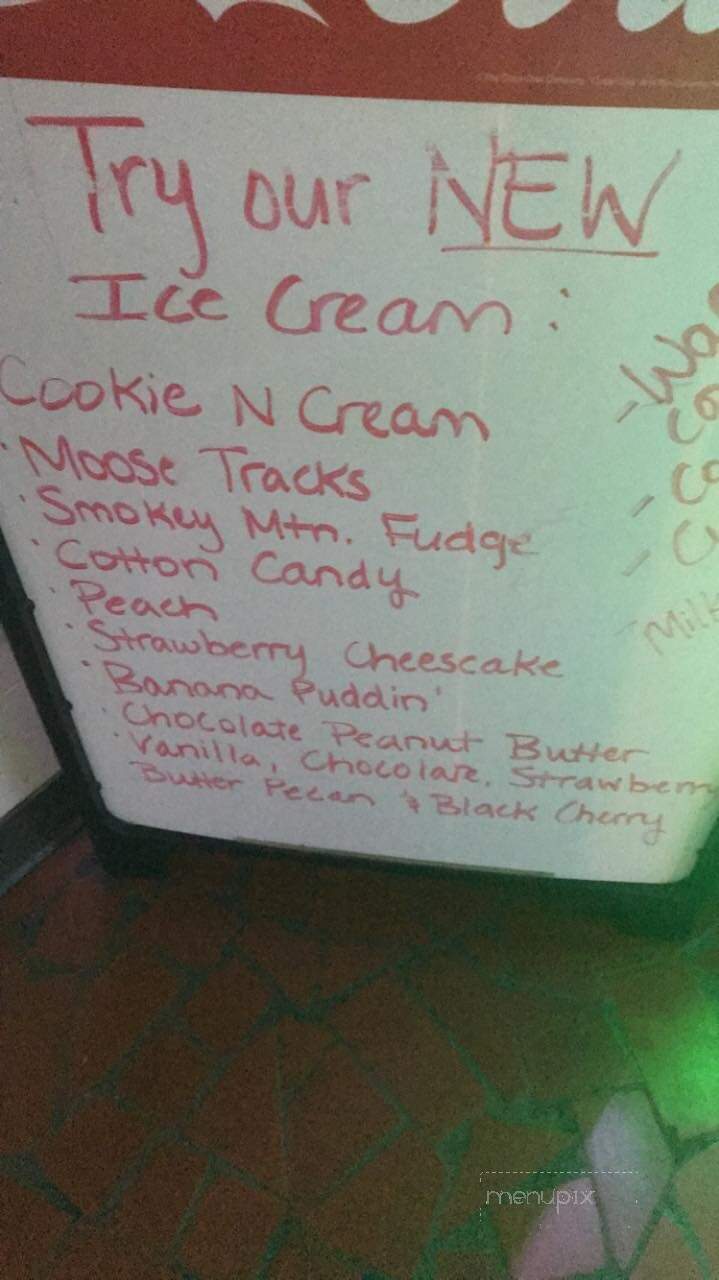 Try our NEW
Ice Cream:
Cookie N Cream
· Moose Tracks
· Smokey Mtn. Fudge
· Cotton Candy
· Peach
· Strawberry Cheescake
· Banana Puddin'
· Chocolate Peanut Butter
· Vanilla, Chocolate, Strawberry
Butter Pecan & Black Cherry
menupix